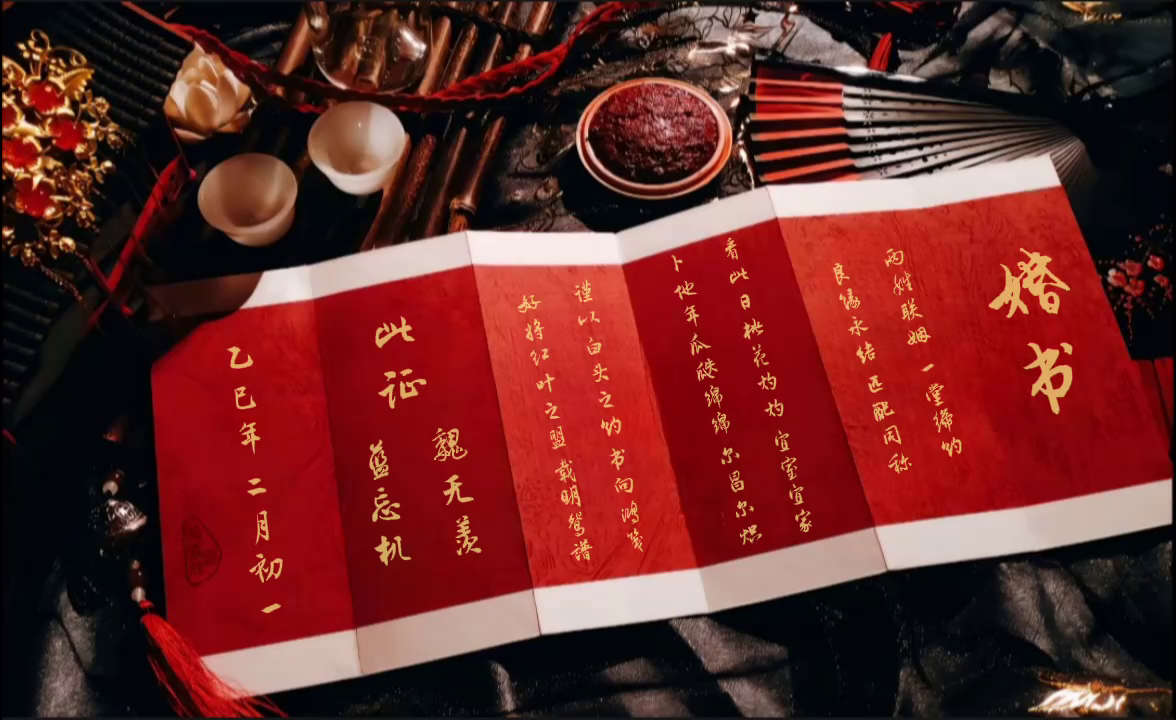 婚书
两姓联姻 一堂缔约
良缘永结 匹配同称
看此日桃花灼灼 宜室宜家
卜他年瓜瓞绵绵 尔昌尔炽
谨以白头之约 书向鸿笺
好将红叶之盟 载明鸳谱
此证
魏无羡
蓝忘机
乙巳年 二月初一